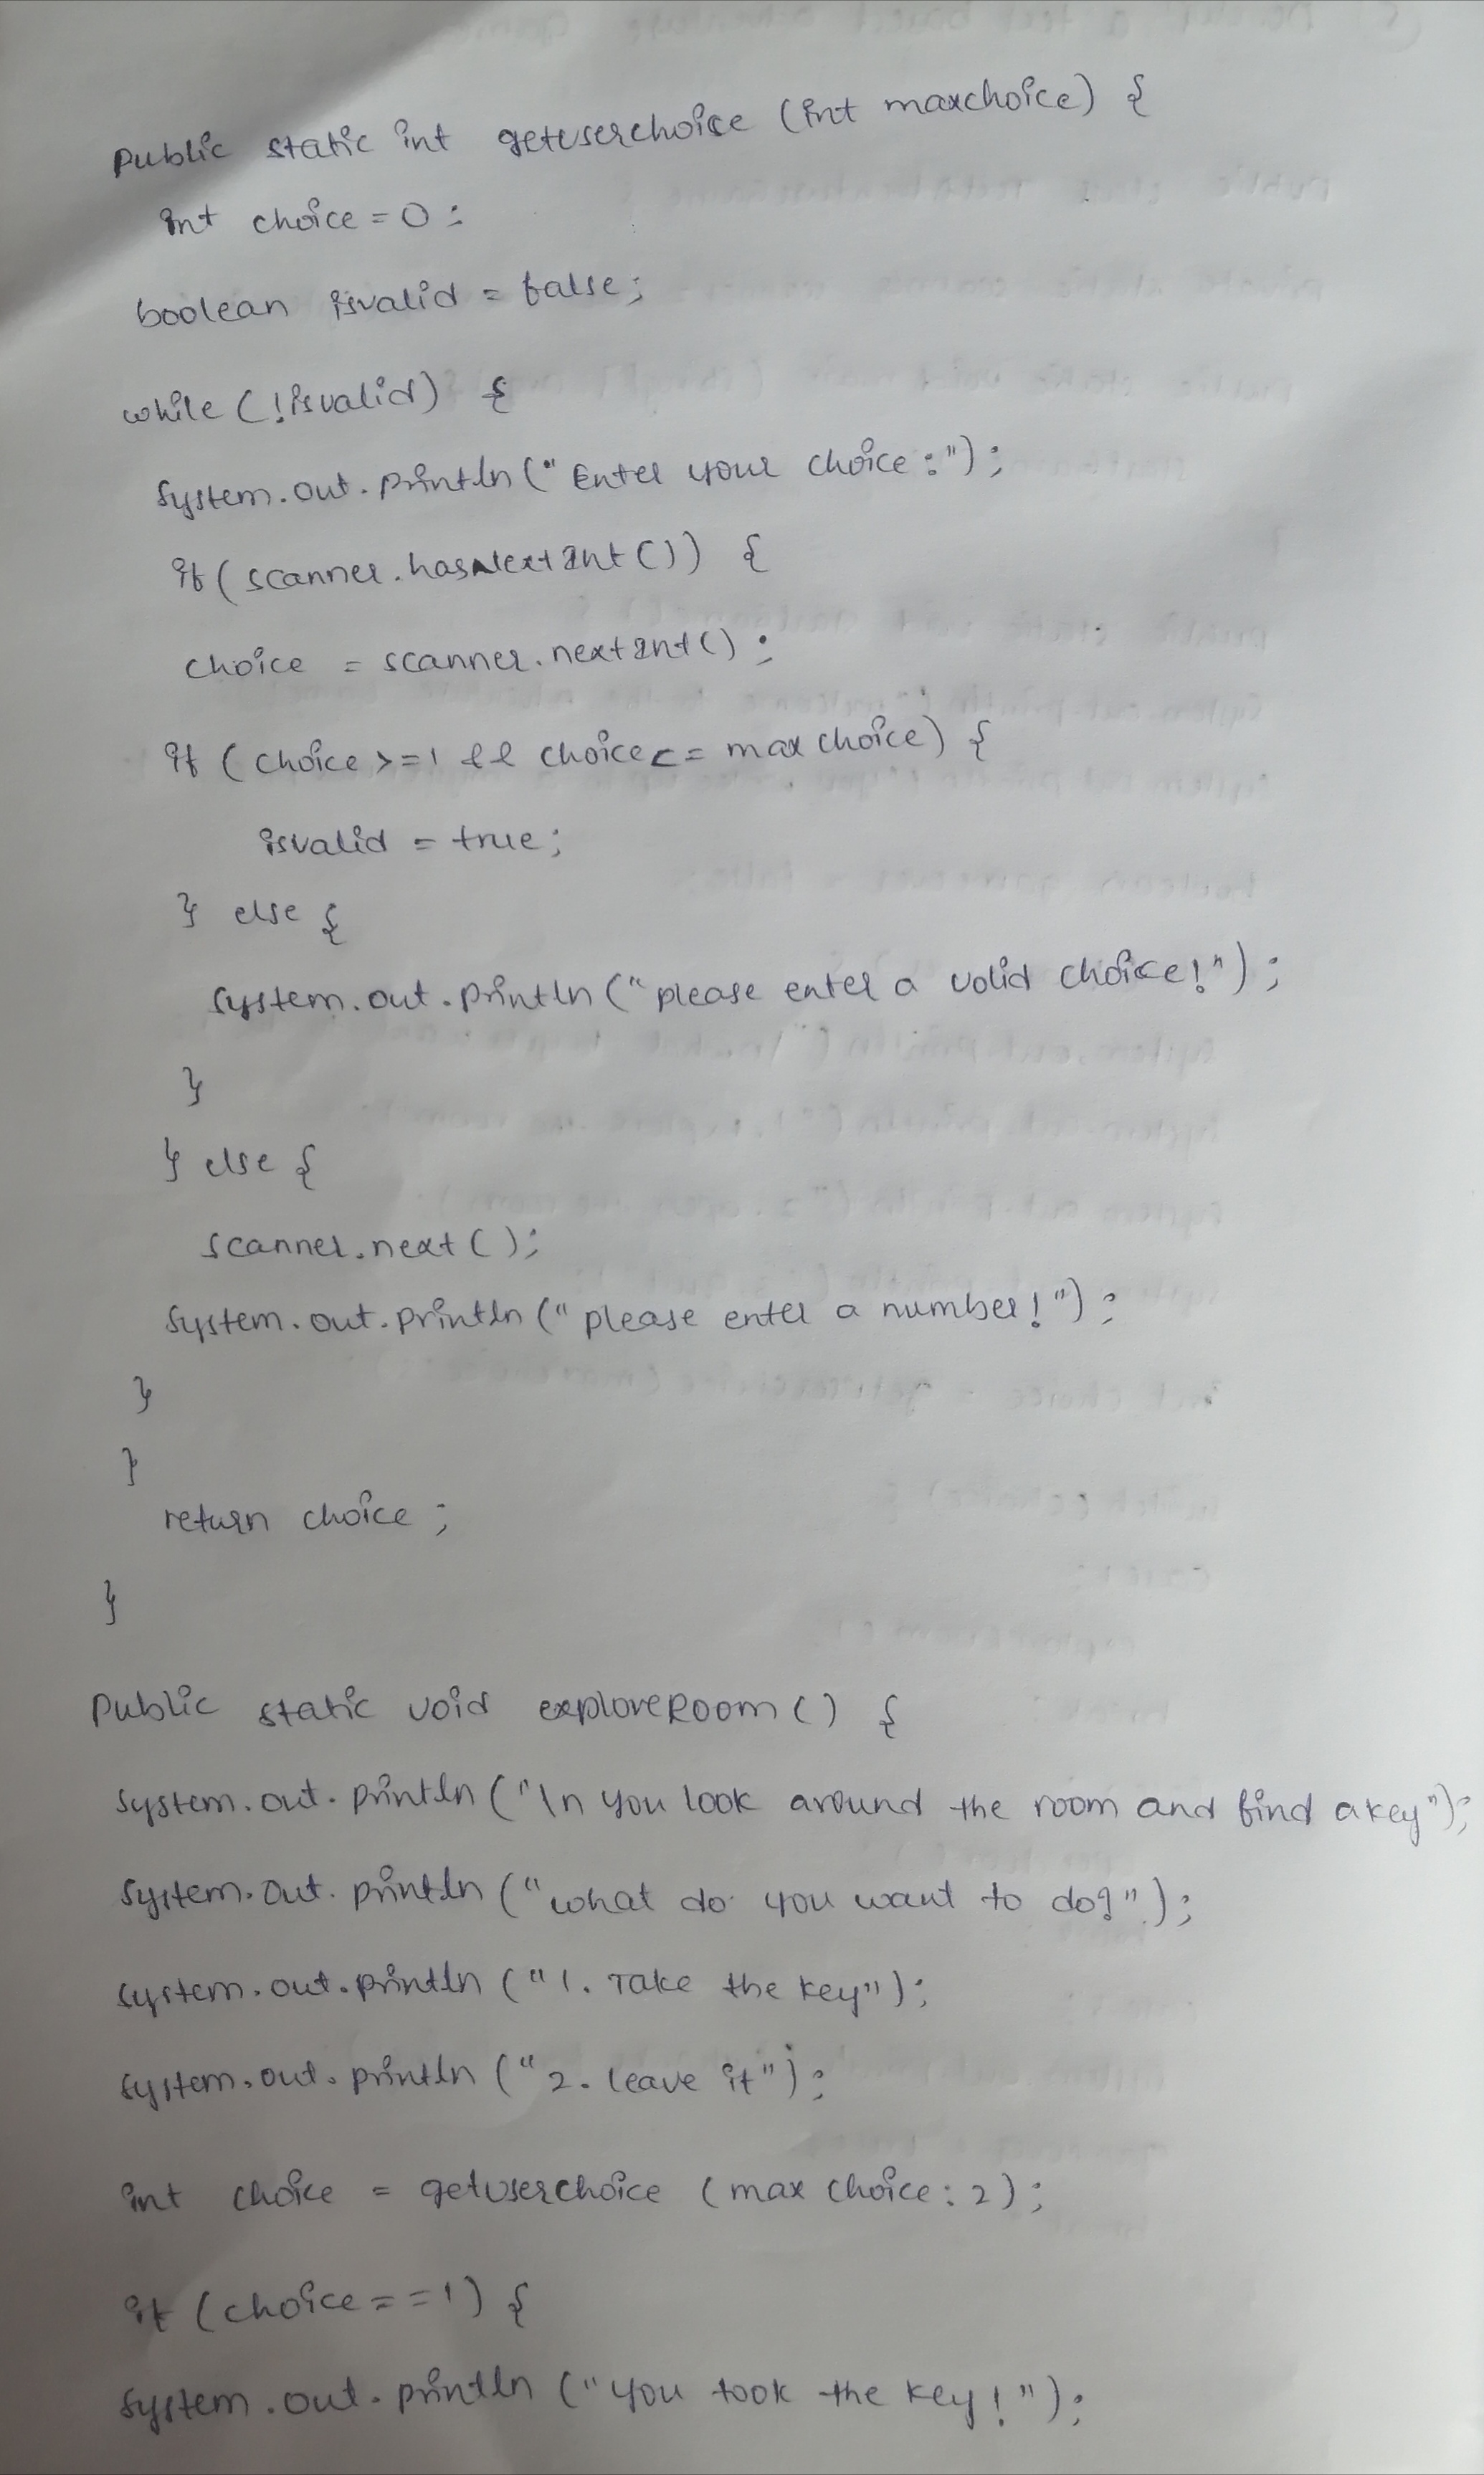 public static int getuserchoice (int maxchoice) {
int choice = 0 ;
boolean isvalid = false;
while (!isvalid) {
system.out.println(" Enter your choice : ") ;
if (scanner.hasNextInt ( ) ) {
choice = scanner.nextInt ( ) ;
if ( choice >=1 && choice <= max choice) {
isvalid = true;
} else {
system.out.println ("please enter a valid choice!") ;
}
} else {
scanner.next ( );
system.out.println ("please enter a number!") ;
}
}
return choice ;
}
public static void exploreRoom ( ) {
system.out.println ("\n you look around the room and find a key");
system.out.println ("what do you want to do?");
system.out.println ("1. Take the key");
system.out.println ("2. leave it");
int choice = getuserchoice (max choice: 2) ;
if (choice ==1) {
system.out.println ("you took the key!");